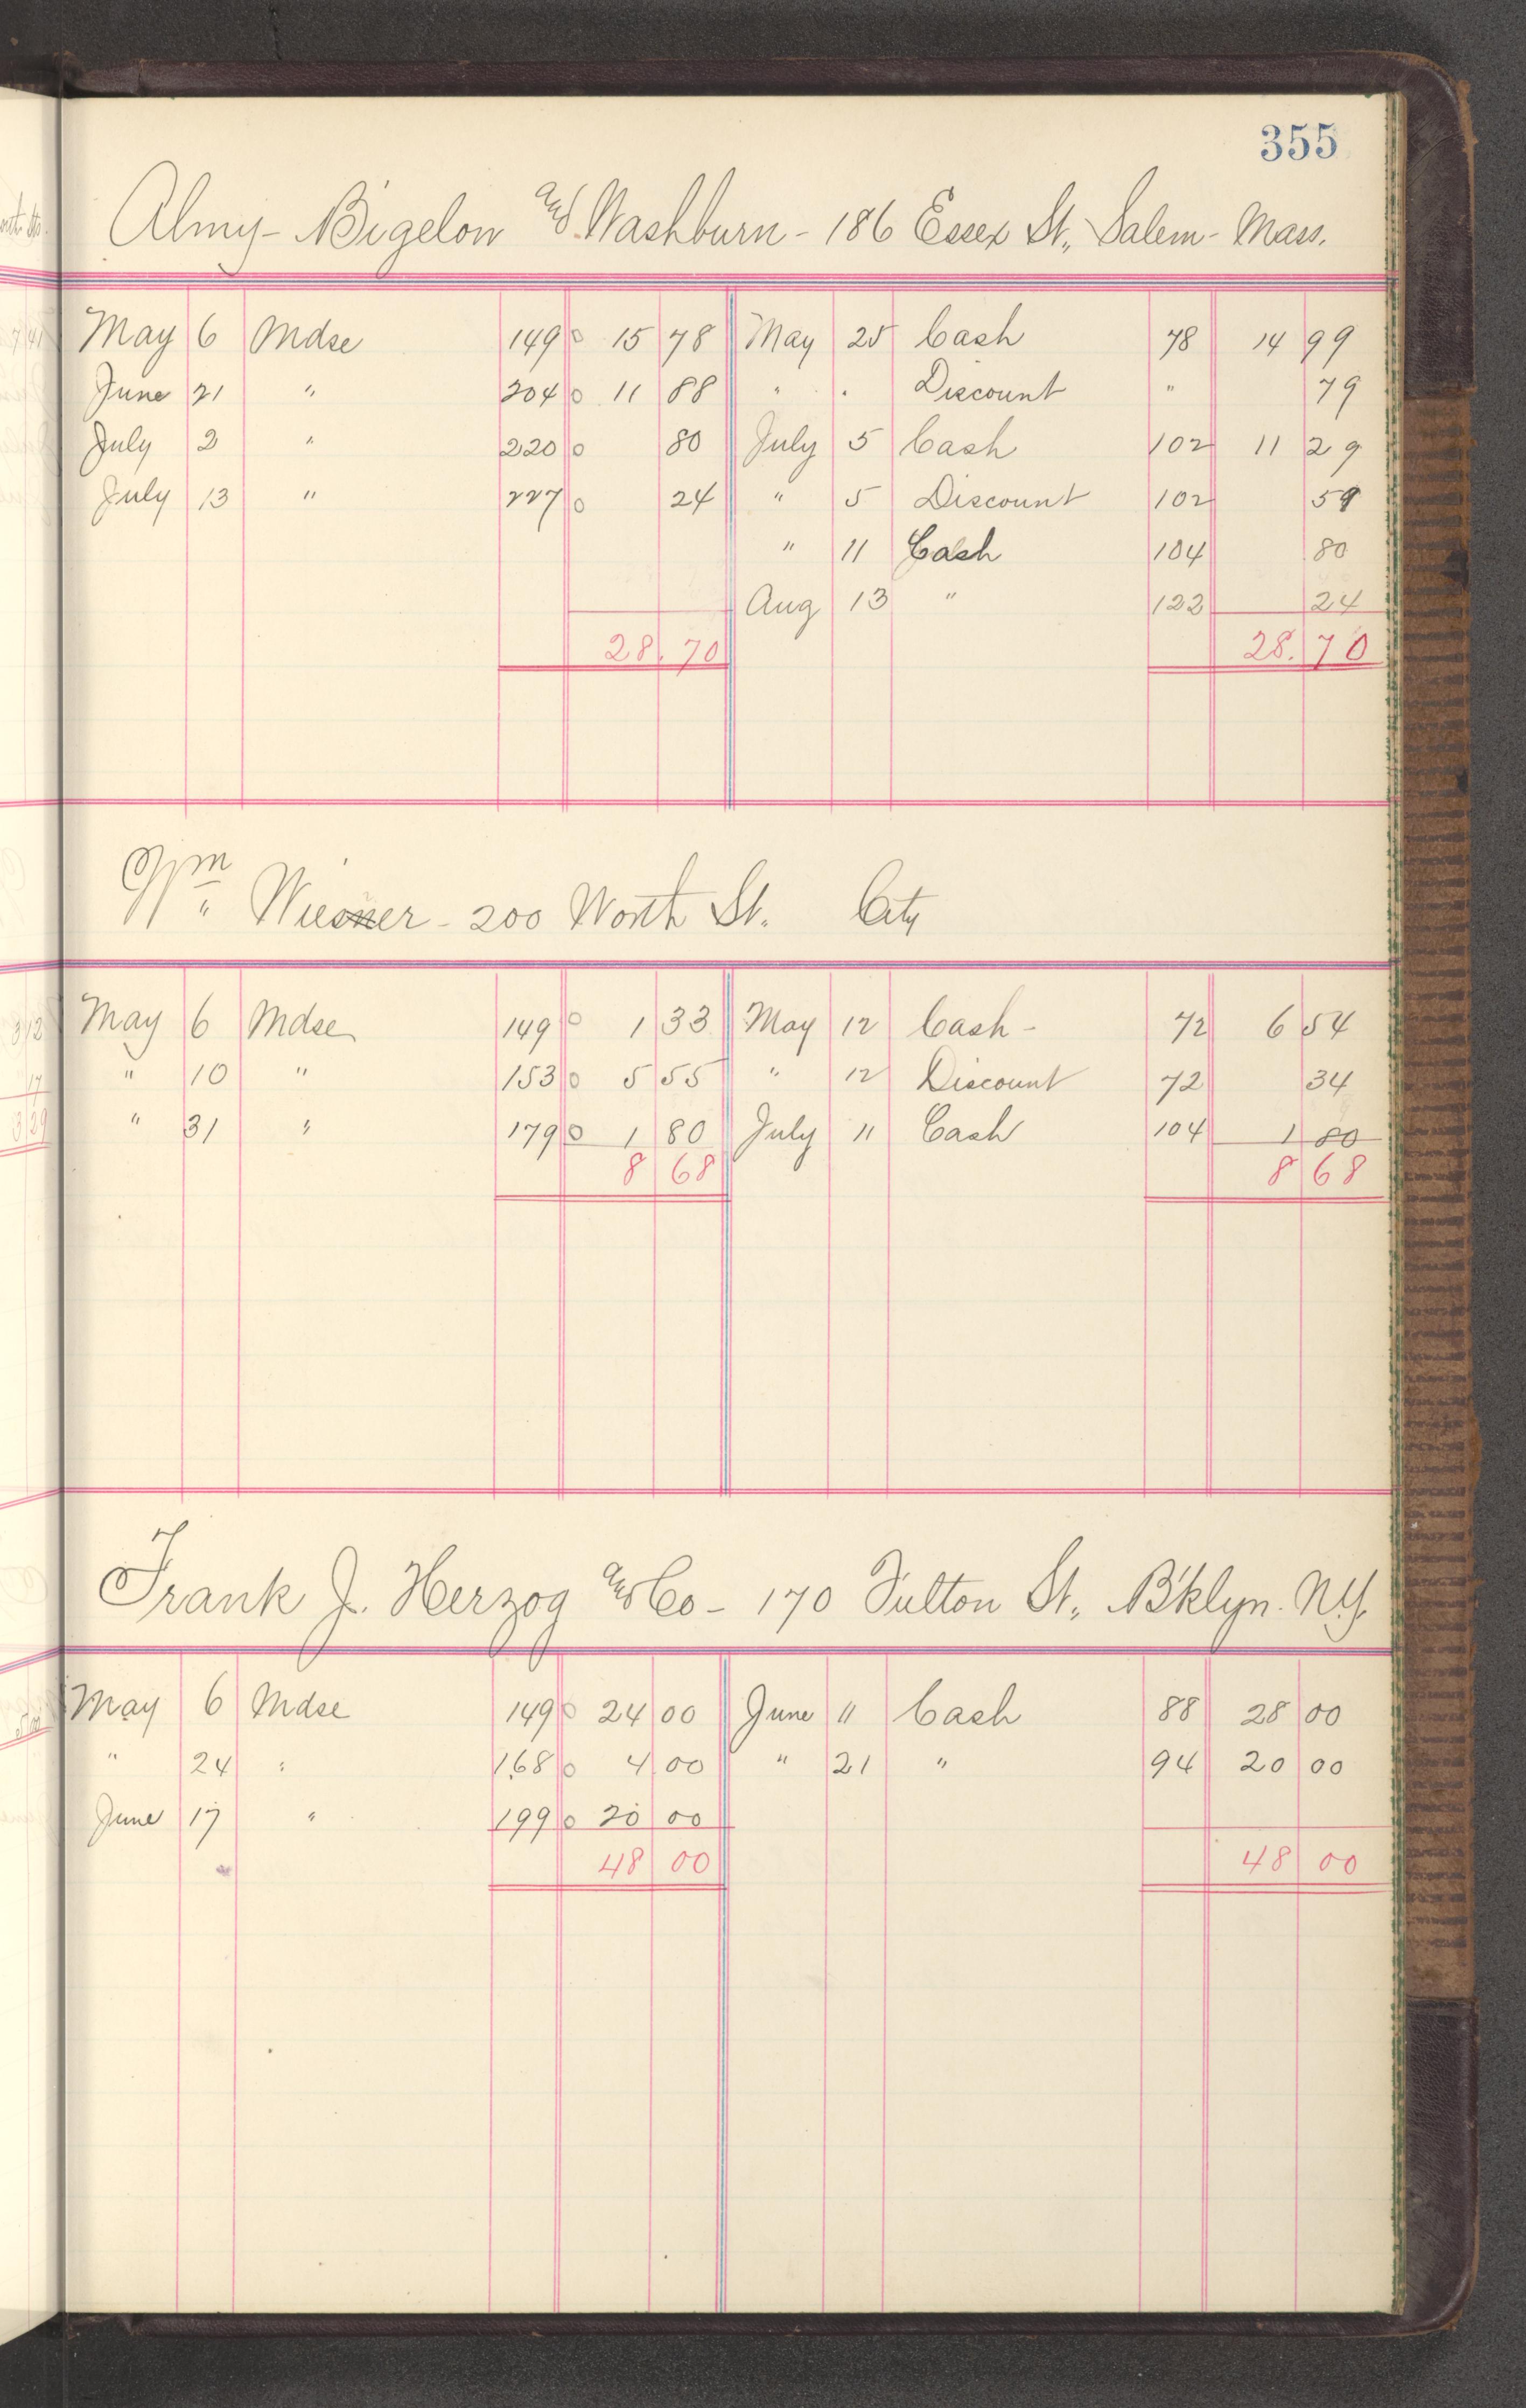 355
Almy - Bigelow and Washburn - 186 Essex St., Salem - Mass.
May 6 Mdse 149 0 15 78 May 25 Cash 78 14 99
June 21 " 204 0 11 88 " " Discount " 79
July 2 " 220 0 80 July 5 Cash 102 11 29
July 13 " 227 0 24 " 5 Discount 102 59
" 11 Cash 104 80
Aug 13 " 122 24
28.70 28.70
Wm Wiesner - 200 Worth St. City
May 6 Mdse 149 0 1 33 May 12 Cash - 72 6 54
" 10 " 153 0 5 55 " 12 Discount 72 34
" 31 " 179 0 1 80 July 11 Cash 104 1 80
8 68 8 68
Frank J. Herzog and Co - 170 Fulton St., B'klyn. N.Y.
May 6 Mdse 149 0 24 00 June 11 Cash 88 28 00
" 24 " 168 0 4 00 " 21 " 94 20 00
June 17 " 199 0 20 00
48 00 48 00